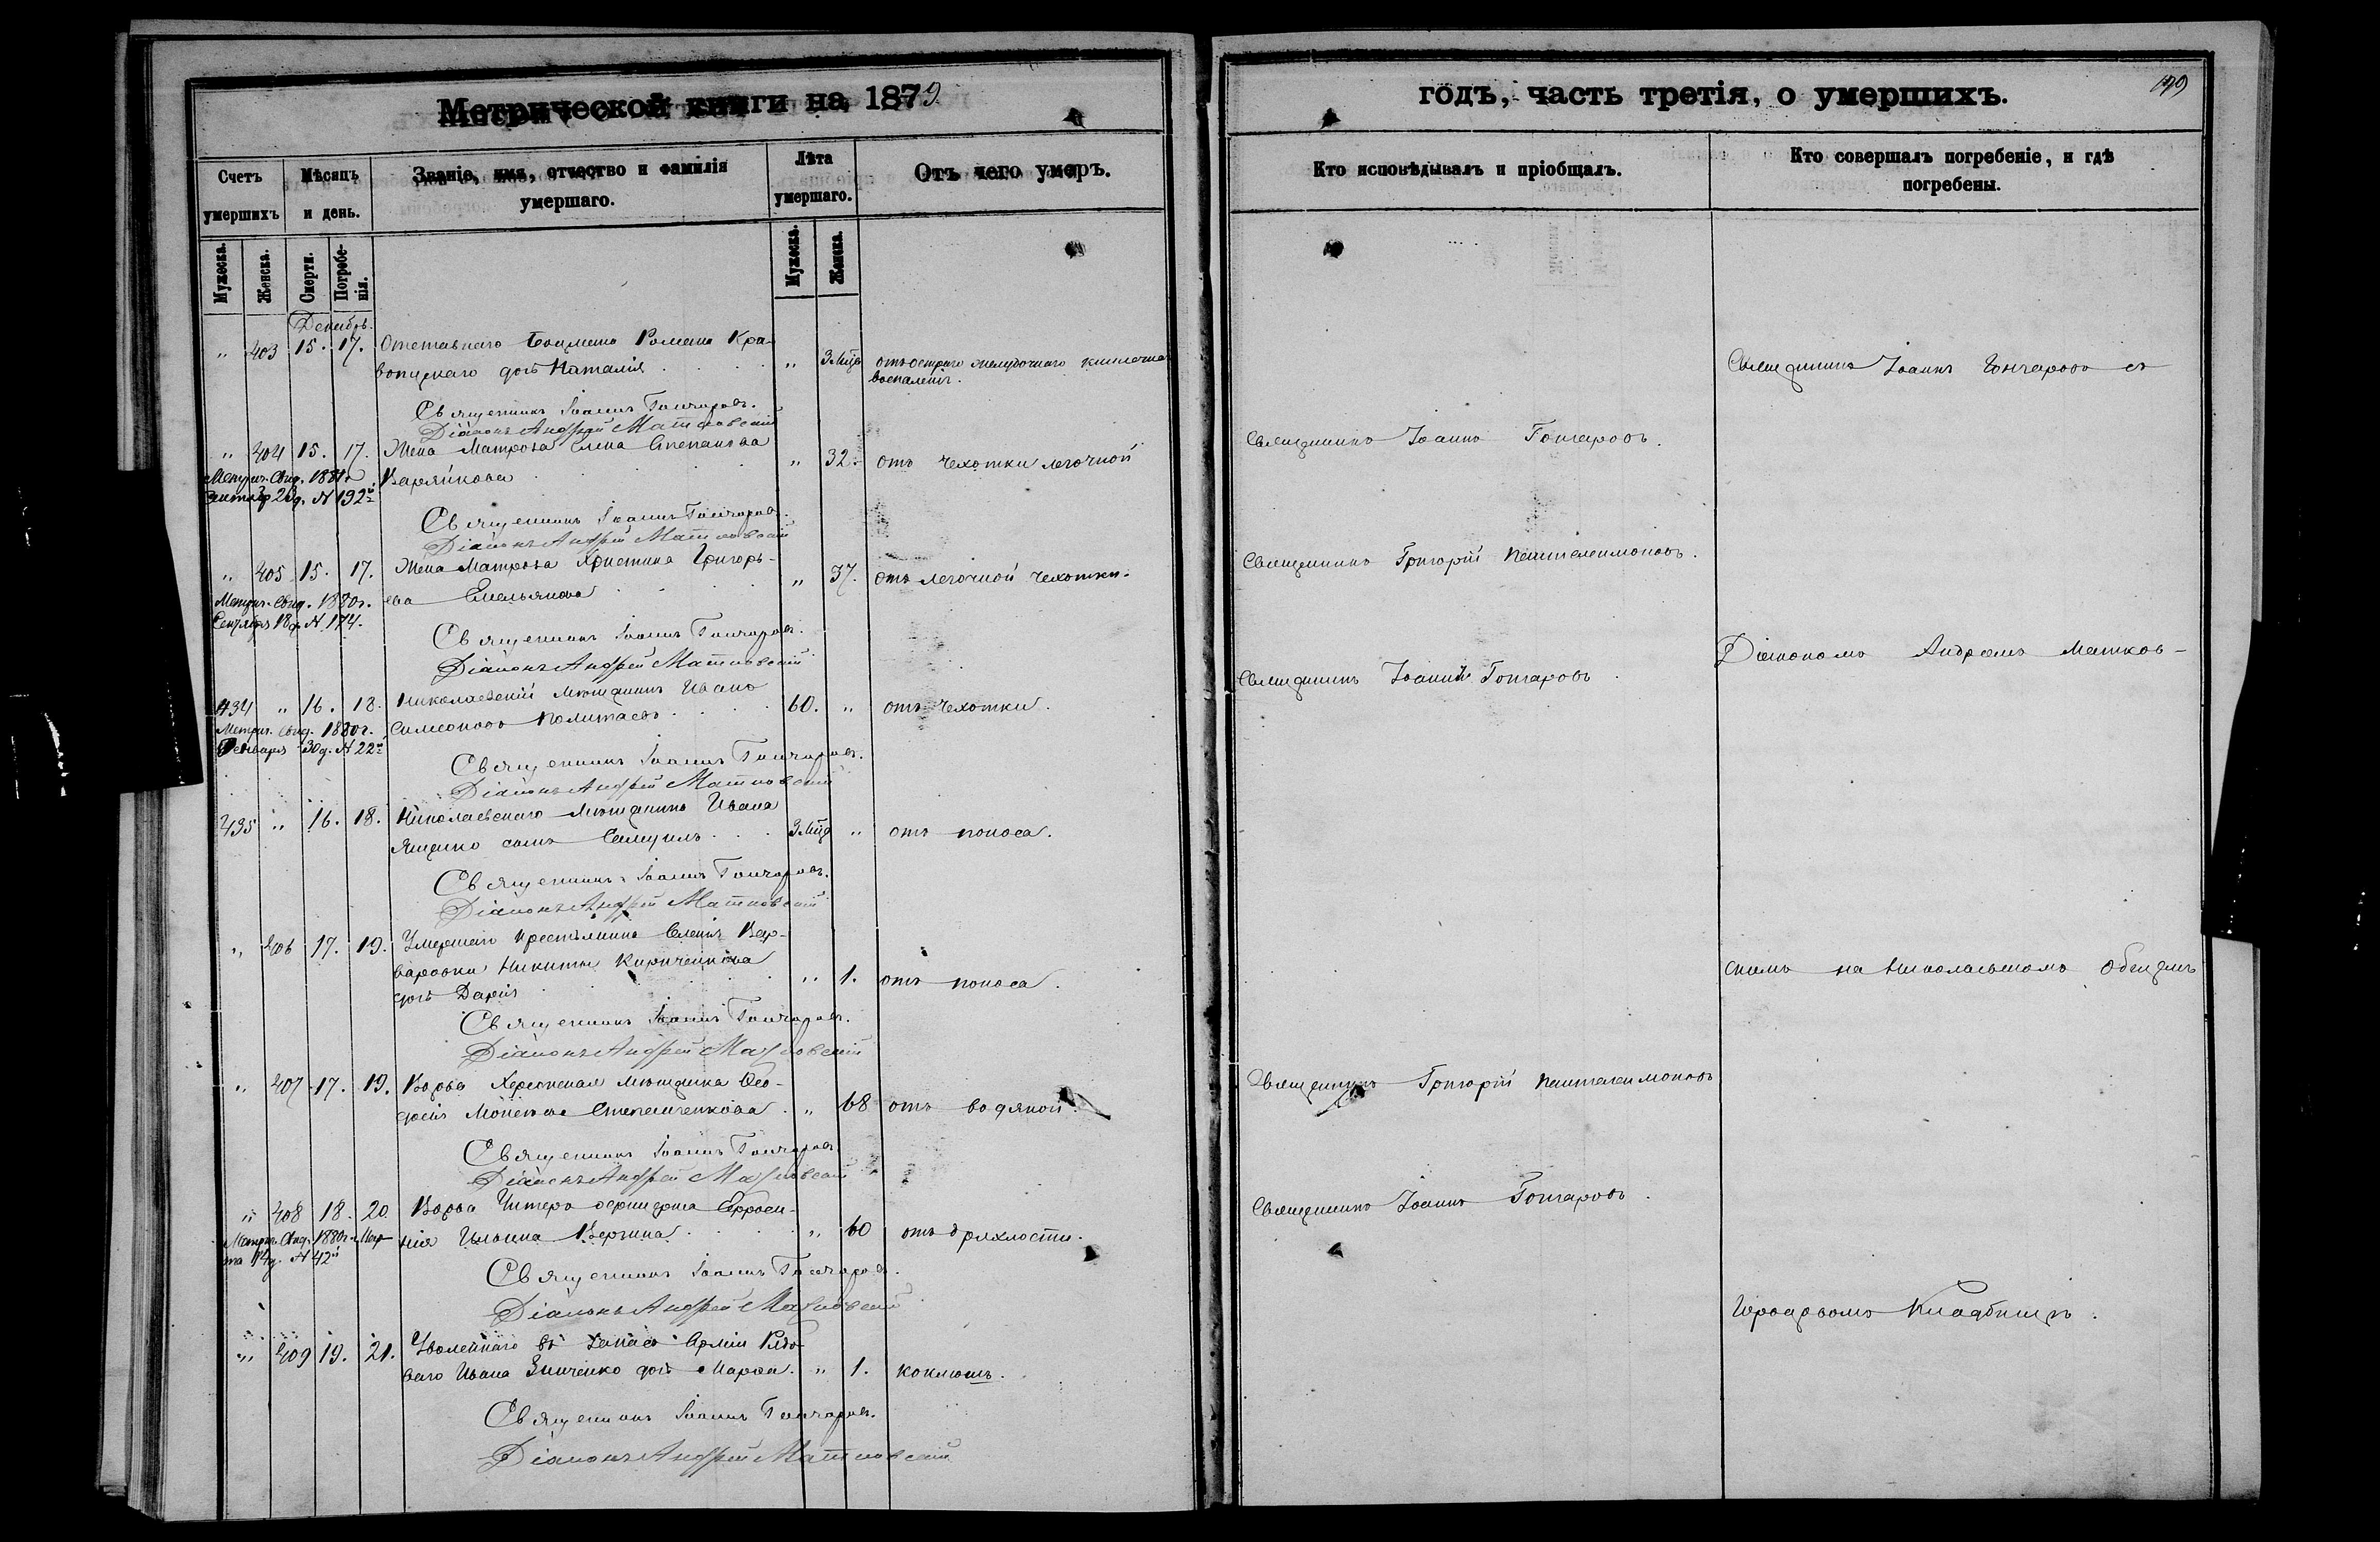 Метрической книги на 1879
Счетъ умершихъ
Мѣсяцъ и день.
Званіе, имя, отчество и фамилія умершаго.
Лѣта умершаго.
Отъ чего умеръ.
Мужеска.
Женска.
Смерти.
Погребенія.
Мужеска.
Женска.
Декабрь.
" 403 15. 17. Отставнаго Боцмана Романа Кра-
вопускаго дочь Наталія " 3 Мца отъ остраго желудочнаго
воспаленія.
Священникъ Іоаннъ Гончаровъ.
Діаконъ Андрей Матковскій
" 404 15. 17. Жена Матроса Елена Степанова
" 32. отъ чехотки легочной
Метрич. свид. 1881
23 д. № 192й
Священникъ Іоаннъ Гончаровъ.
Діаконъ Андрей Матковскій
" 405 15. 17. Жена Матроса Христина Григорь-
ева Емельянова " 37. отъ легочной чехотки.
Метрич. свид. 1880 г.
Сентября 18 д. № 174.
Священникъ Іоаннъ Гончаровъ.
Діаконъ Андрей Матковскій
434 " 16. 18. Николаевскій мѣщанинъ Иванъ
Симеоновъ 60. " отъ чехотки.
Метрич. свид. 1880 г.
30 д. № 22й
Священникъ Іоаннъ Гончаровъ.
Діаконъ Андрей Матковскій
435 " 16. 18. Николаевскаго мѣщанина Ивана
Ященко сынъ Самуилъ 3 Мца " отъ поноса.
Священникъ Іоаннъ Гончаровъ.
Діаконъ Андрей Матковскій
" 406 17. 19. Умершаго крестьянина Селенія Вар-
варовки Никиты Кириченкова
дочь Дарія " 1. отъ поноса.
Священникъ Іоаннъ Гончаровъ.
Діаконъ Андрей Матковскій
" 407 17. 19. Вдова Херсонская мѣщанка Ѳео-
досія Степанченкова " 68 отъ водяной.
Священникъ Іоаннъ Гончаровъ
Діаконъ Андрей Матковскій
" 408 18. 20. Вдова Унтеръ офицерша Ефроси-
нія Ильина " 60 отъ дряхлости.
Метрич. свид. 1880 г. Мар-
та 14 д. № 42й
Священникъ Іоаннъ Гончаровъ.
Діаконъ Андрей Матковскій
" 409 19. 21. Уволеннаго въ запасъ Арміи Рядо-
ваго Ивана Зинченко дочь Марфа. " 1. коклюшъ.
Священникъ Іоаннъ Гончаровъ.
Діаконъ Андрей Матковскій
годъ, часть третія, о умершихъ.
Кто исповѣдывалъ и пріобщалъ.
Кто совершалъ погребеніе, и гдѣ погребены.
Священникъ Іоаннъ Гончаровъ съ
Священникъ Іоаннъ Гончаровъ.
Священникъ Григорій Пантелеимоновъ.
Діакономъ Андреемъ Матков-
Священникъ Іоаннъ Гончаровъ.
скимъ на Николаевскомъ Общемъ
Священникъ Григорій Пантелеимоновъ
Священникъ Іоаннъ Гончаровъ.
Городскомъ Кладбищѣ.